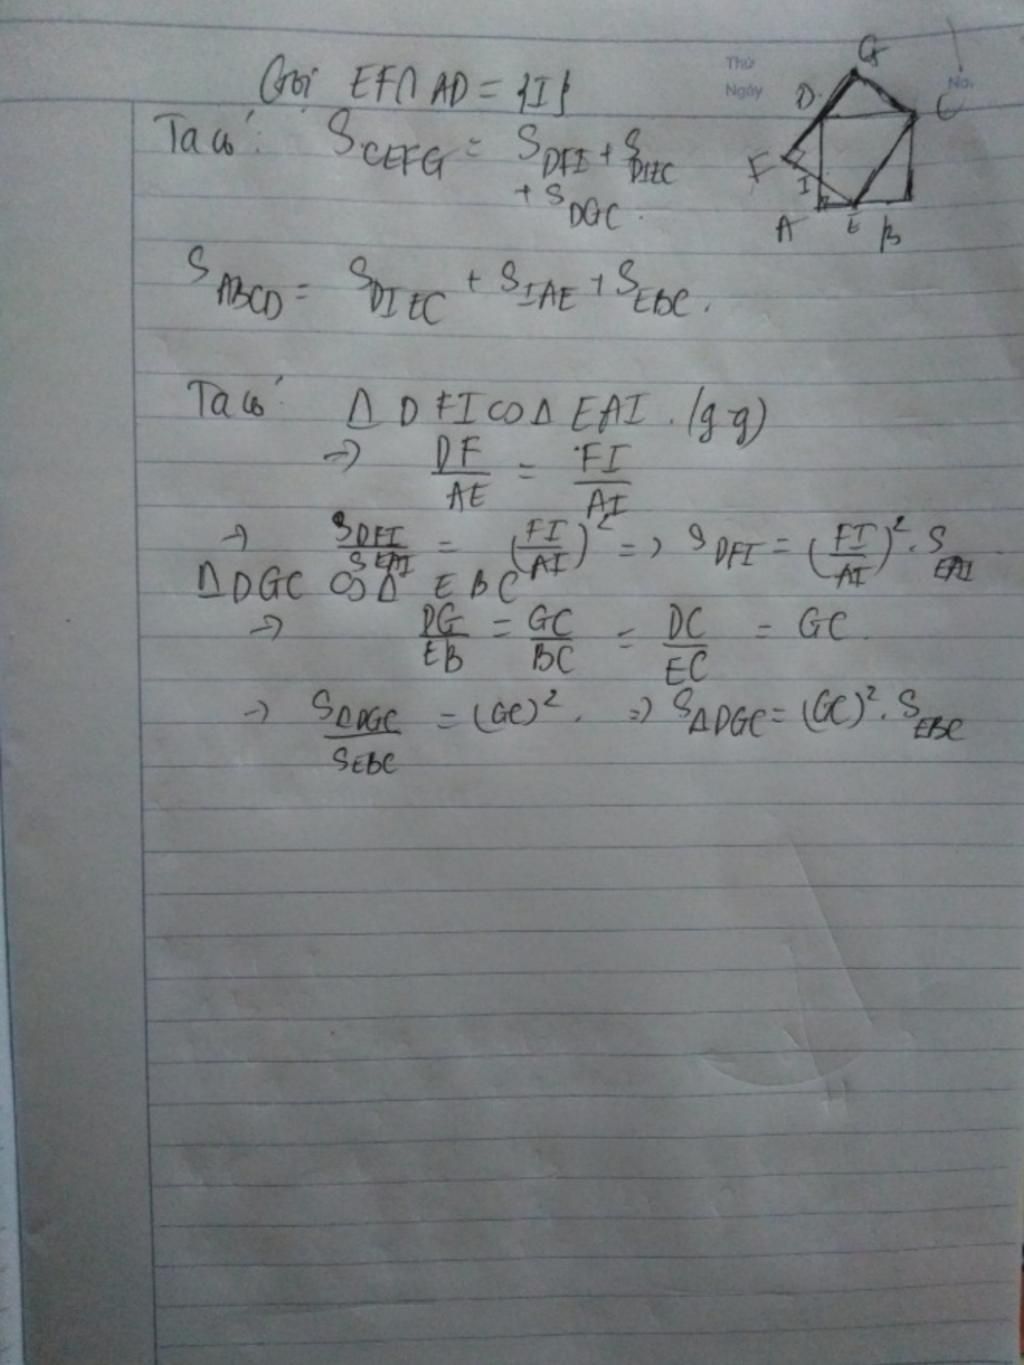 Gọi EF∩AD = {I}
Thứ
Ngày
No.
G
D
C
F
I
A
E
B
Ta có: S_CEFG = S_DFI + S_DIEC
+ S_DGC.
S_ABCD = S_DIEC + S_IAE + S_EBC.
Ta có ΔDFI ∽ ΔEAI. (gg)
→ DF/AE = FI/AI
→ S_DFI/S_EAI = (FI/AI)² => S_DFI = (FI/AI)². S_EAI
ΔDGC ∽ Δ EBC
→ DG/EB = GC/BC = DC/EC = GC.
→ S_ΔDGC/S_EBC = (GC)². => S_ΔDGC = (GC)². S_EBC